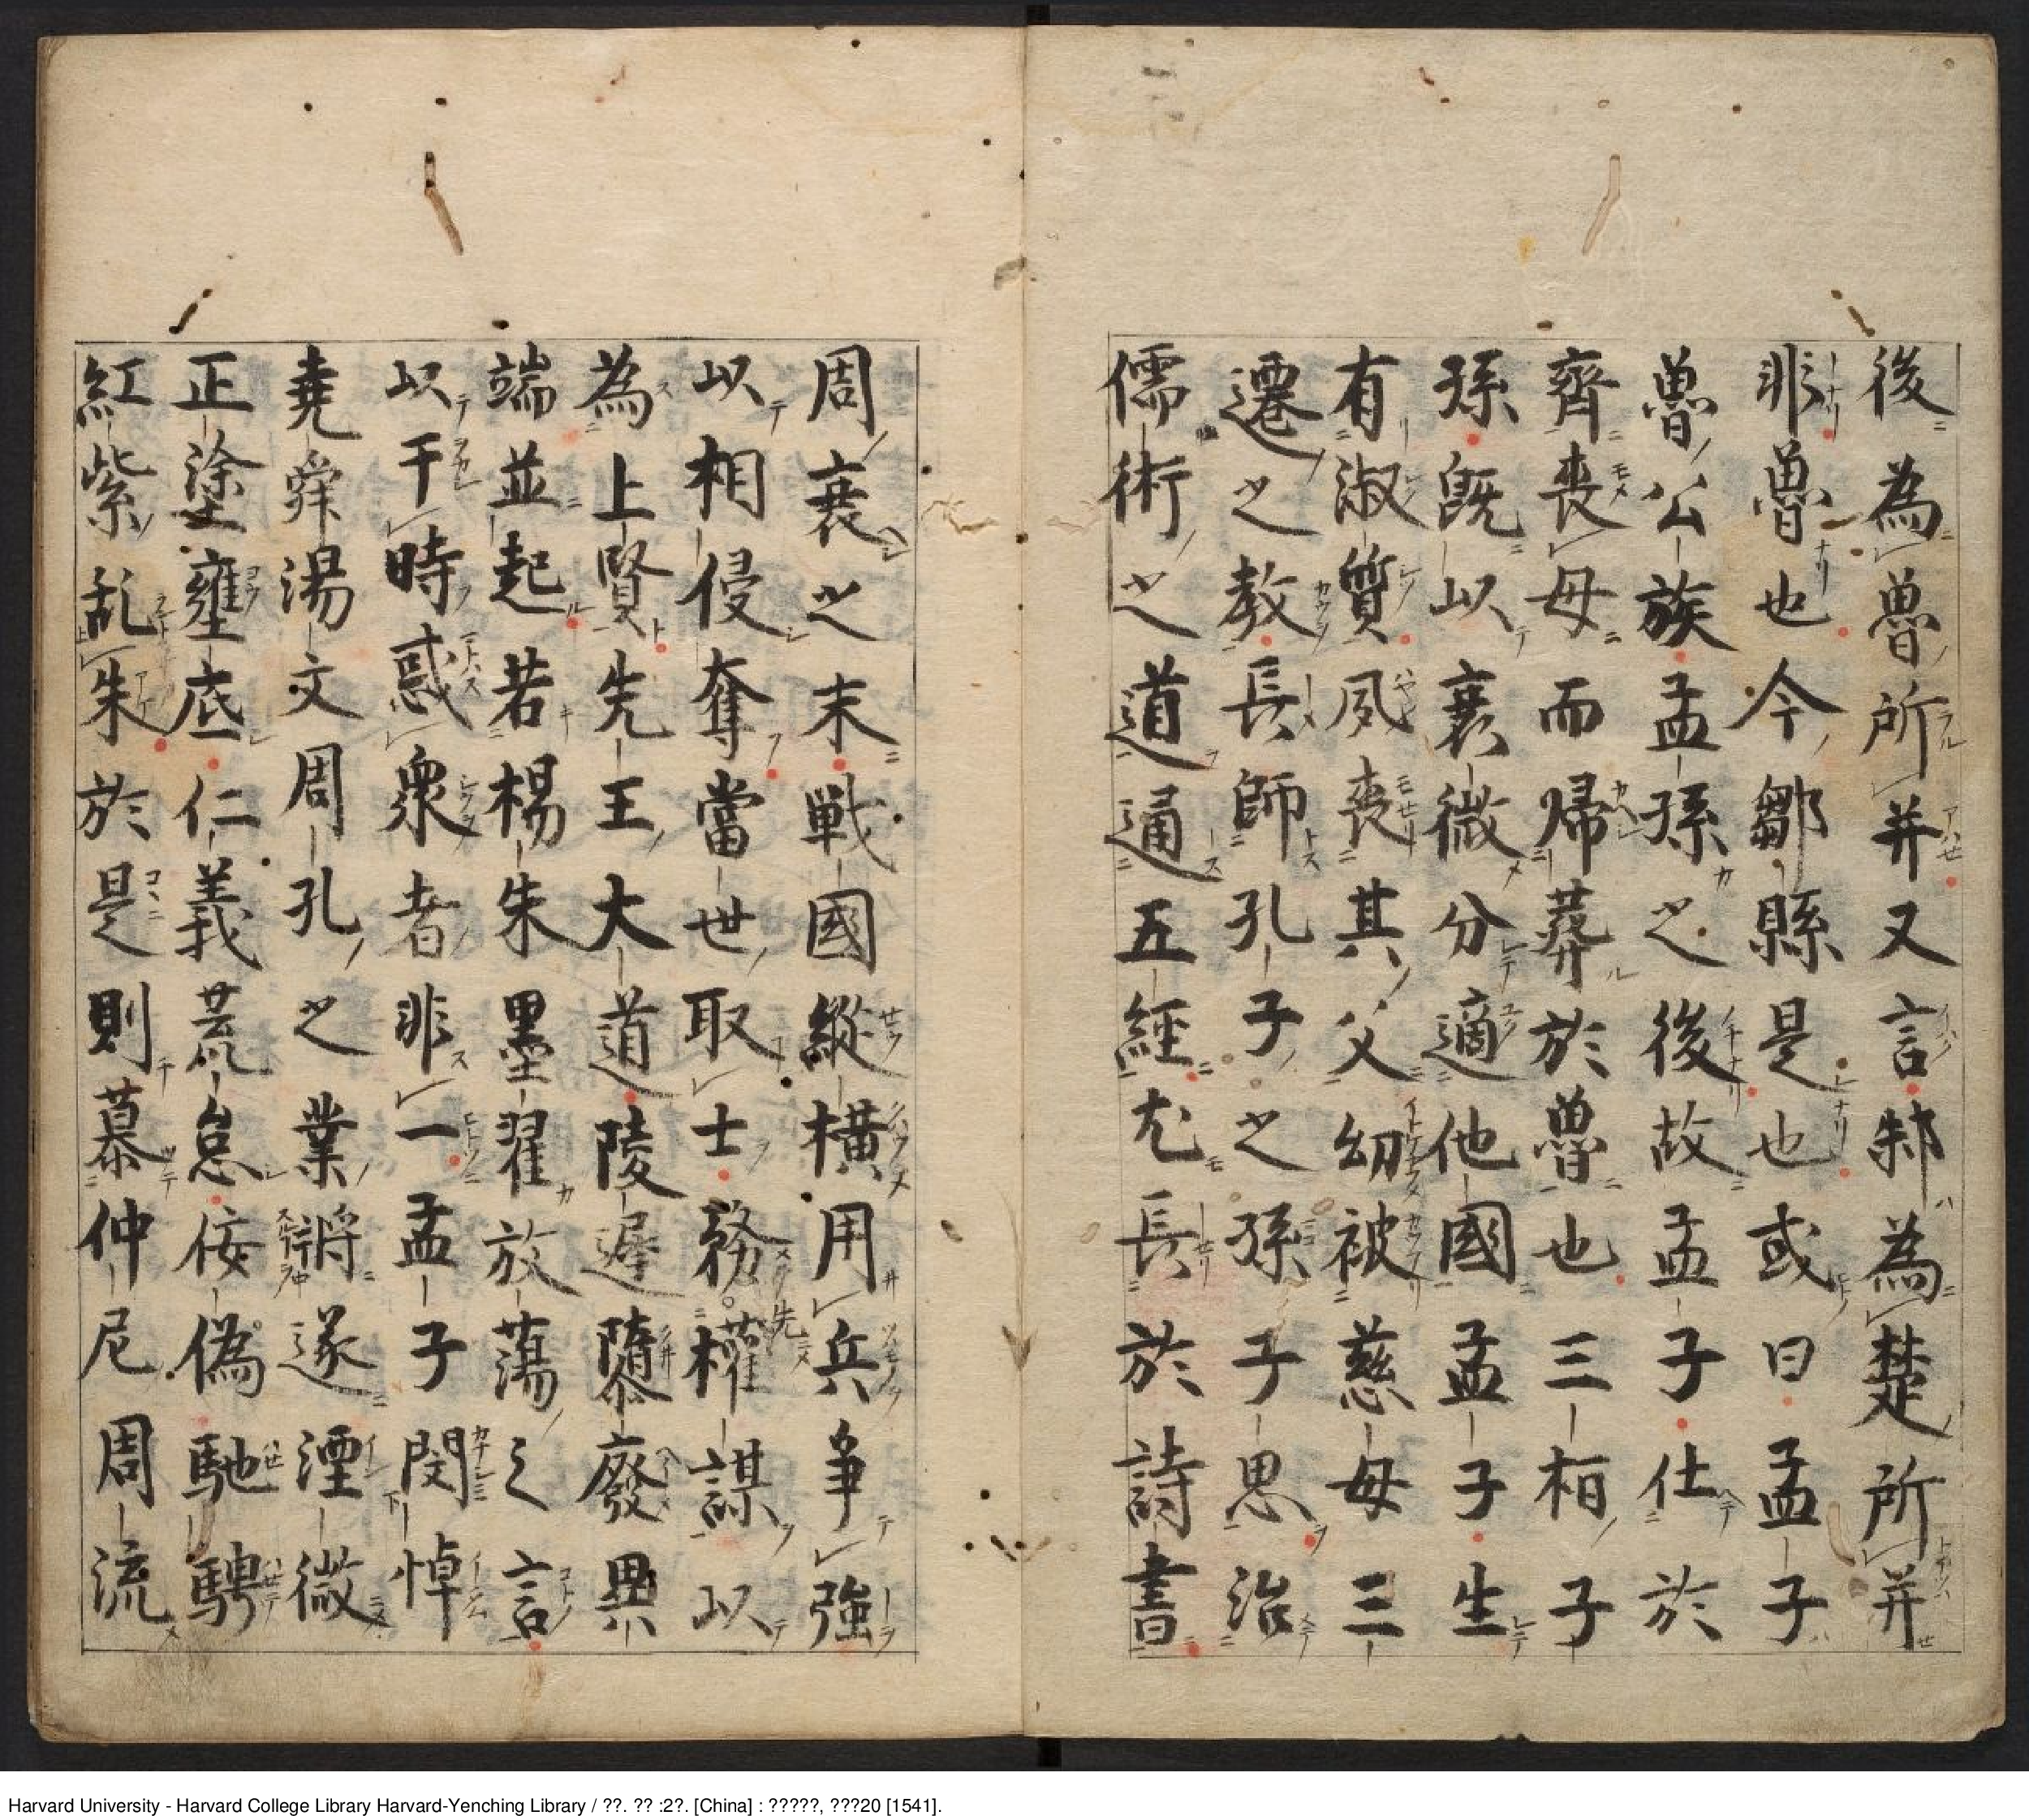 後為魯所并又言邾為楚所并
非魯也今鄒縣是也或曰孟子
魯公族孟孫之後故孟子仕於
齊喪母而帰葬於魯也三桓子
孫既以衰微分適他國孟子生
有淑質夙喪其父幼被慈母三
遷之教長師孔子之孫子思治
儒術之道通五經尤長於詩書
周衰之末戦國縱橫用兵争強
以相侵奪當世取士務權謀以
為上賢先王大道陵遲隳廢異
端並起若楊朱墨翟放蕩之言
以干時惑衆者非一孟子閔悼
堯舜湯文周孔之業将遂湮微
正塗壅底仁義荒怠佞偽馳騁
紅紫乱朱於是則慕仲尼周流
Harvard University - Harvard College Library Harvard-Yenching Library / ??. ?? :2?. [China] : ?????, ???20 [1541].